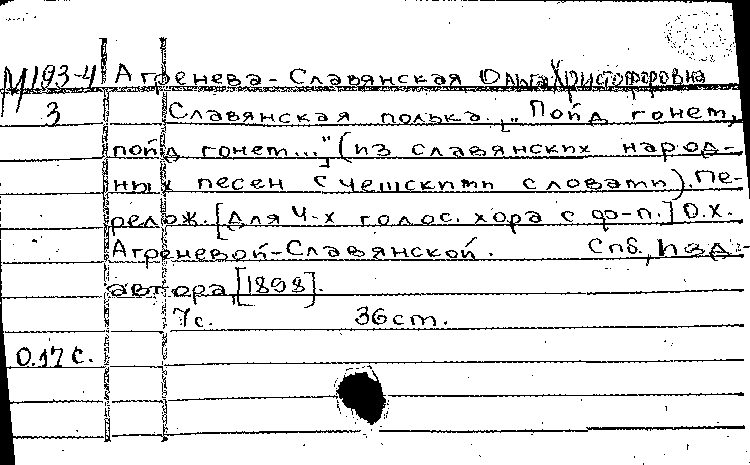 М193-4 Агренева-Славянская Ольга Христофоровна
3 Славянская полька. [„Пойд гонем,
пойд гонет..."] (из славянских народ-
ных песен с чешскими словами). Пе-
релож. [для 4-х голос. хора с ф-п.] О.Х.
Агреневой-Славянской. Спб, Изд.-
автора, [1898].
7с. 36 ст.
0.17 с.